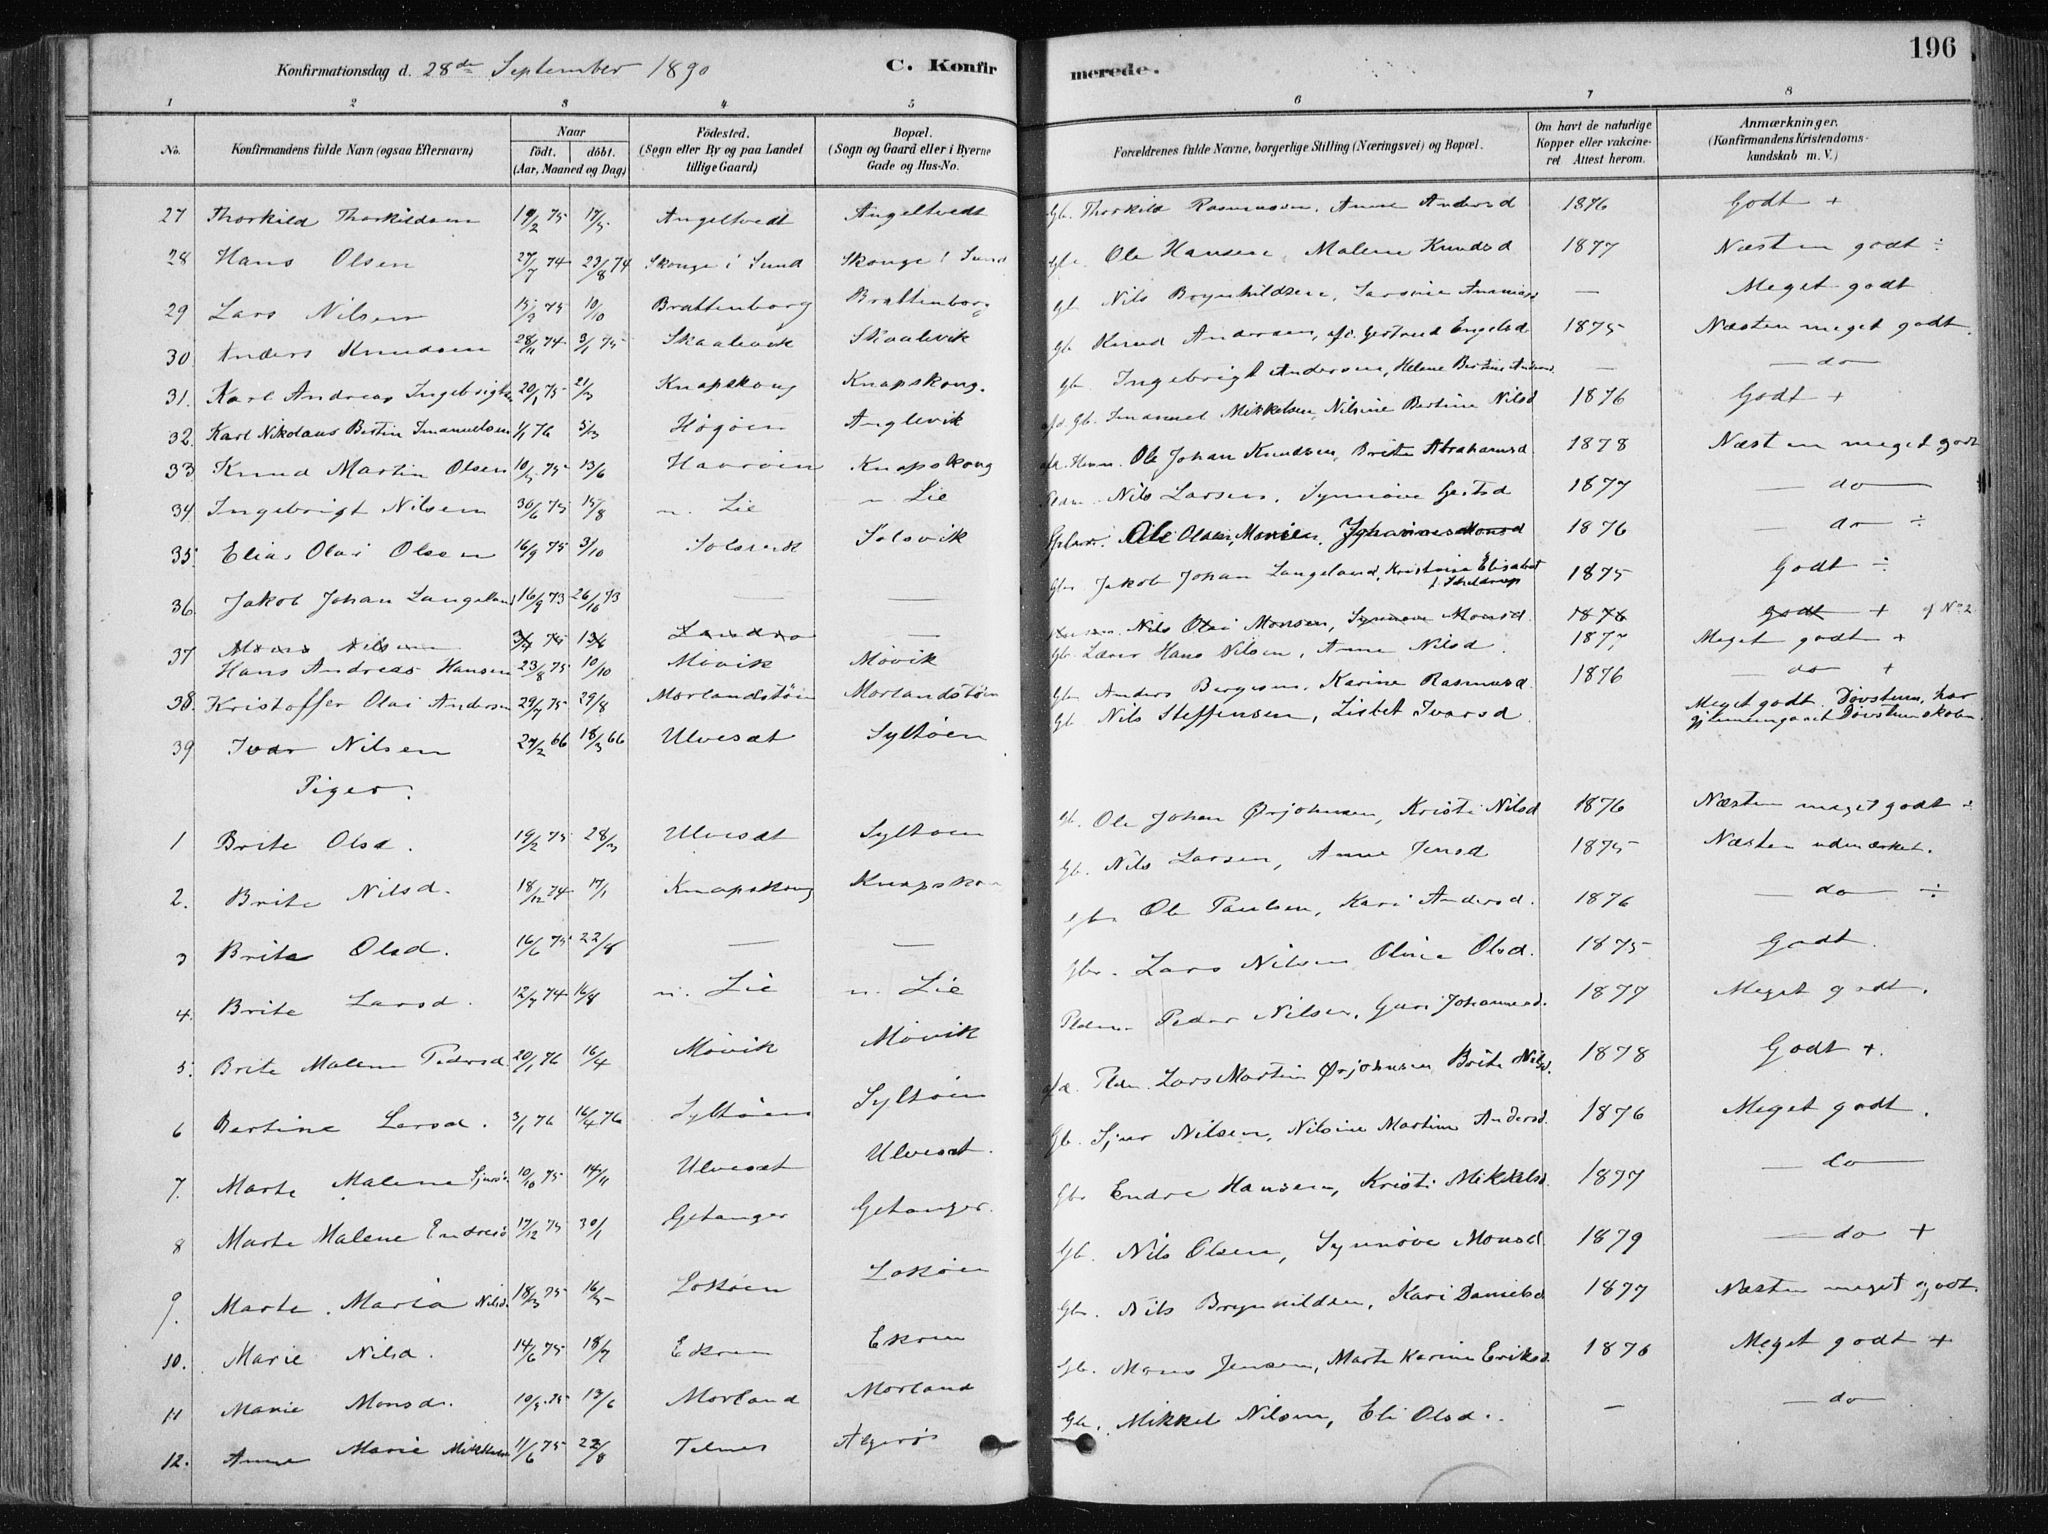 196
Konfirmationsdag d. 28de September 1890 C. Konfirmerede.
1 2 3 4 5 6 7 8
No. Konfirmandens fulde Navn (ogsaa Efternavn) Naar födt. döbt. (Aar, Maaned og Dag) Födested. (Sogn eller By og paa Landet tillige Gaard) Bopæl. (Sogn og Gaard eller i Byerne Gade og Hus-No. Forældrenes fulde Navne, borgerlige Stilling (Næringsvei) og Bopæl. Om havt de naturlige Kopper eller vakcineret Attest herom. Anmærkninger. (Konfirmandens Kristendomskundskab m. V.)
27 Thorkild Thorkildsen 19/2 75 17/5 Angeltvedt Angeltvedt Gb. Thorkild Rasmussen, Anne Andersd 1876 Godt +
28 Hans Olsen 27/7 74 23/8 74 Skouge i Sund Skouge i Sund Gb. Ole Hansen, Malene Knudsd 1877 Næsten godt ÷
29 Lars Nilsen 75 10/10 Brattenborg Brattenborg Gb Nils Brynhildsen, — Meget godt
30 Anders Knudsen 28/11 74 3/1 75 Skaalevik Skaalevik Gb Knud Andersen, Gertrud Engelsd 1875 Næsten meget godt.
31. Karl Andreas Ingebrigtsen 20/1 75 21/3 Knapskoug Knapskoug. Gb. Ingebrigt Andersen, Helene Bertine Andersd. — — do
32. Karl Nikolaus Bertin Imanuelsen 1/1 76 5/3 Högöen Anglevik afd. Gb. Imanuel Mikkelsen, Nilsine Bertine Nilsd 1876 Godt +
33 Knud Martin Olsen 10/5 75 13/6 Haaröen Knapskoug Ole Johan Knudsen, Brite Abrahamsd. 1878 Næsten meget godt
34 Ingebrigt Nilsen 30/6 75 15/8 n. Lie n. Lie Pldm. Nils Larsen, Synnøve Gertsd 1877 — do —
35. Elias Olai Olsen 16/9 75 3/10 Solsvik Solsvik Ole Olsen 1876 — do ÷
36. Jakob Johan Langeland 16/9 73 26/10 73 — — Gbr Jakob Johan Langeland, Kristine Elisabet f. Skeldrup 1875 Godt ÷
37 Mons Nilsen 75 13/6 Landro — Nils Olai Monsen, Synnøve Monsd. 1876 godt + cf No 2
Hans Andreas Hansen 23/8 75 10/10 Mövik Mövik Gb. Lærer Hans Nilsen, Anne Nilsd. 1877 Meget godt +
38. Kristoffer Olai Andersen 29/7 75 29/8 Morlandstöen Morlandstöen Gb Anders Børgesen, Karine Rasmusd. 1876 — do +
39 Ivar Nilsen 27/2 66 18/3 66 Ulvesæt Syltöen Gb Nils Steffensen, Lisbet Ivarsd Meget godt. Døvstum, har gjennemgaaet Døvstumskolen.
Piger.
1 Brite Olsd. 19/2 75 28/3 Ulvesæt Syltöen Gb. Ole Johan Ørjohnsen, Kristi Nilsd 1876 Næsten meget godt ÷
2. Brite Nilsd. 18/12 74 17/1 Knapskoug Knapskou Gb. Nils Larsen, Anne Jensd 1875 Næsten udmærket.
3 Brite Olsd. 16/6 75 22/8 — — Gbr Ole Paulsen, Kari Andersd. 1876 — do — ÷
4. Brite Larsd. 12/7 74 16/8 n. Lie n. Lie Gbr. Lars Nilsen Oline Olsd. 1875 Godt.
5. Brite Malene Pedersd. 20/1 76 16/4 Mövik Mövik Pldm. Peder Nilsen, Guri Johannesd. 1877 Meget godt.
6 Bertine Larsd. 3/1 76 16/4 76 Syltöen Syltöen afd. Pldm. Lars Martin Ørjohnsen Brite Nilsd. 1878 Godt +.
7. Marte Malene Sjursd. 10/10 75 14/11 Ulvesæt Ulvesæt. Gb. Sjur Nilsen, Nilsine Martine Andersd. 1876 Meget godt.
8 Marte Malene Endresd 17/12 75 30/1 Getanger Getanger. Gbr Endre Hansen, Kristi Mikkelsd. 1877 — do —
9. Marte Maria Nilsd. 18/3 75 16/5 Lokøen Lokøen Gb. Nils Olsen, Synnøve Monsd. 1879 — do +
10. Marie Nilsd. 14/6 75 18/7 Ekren Ekren Gbr. Nils Brynhildsen, Kari Danielsd 1877 Næsten meget godt.
11 Marie Monsd. 10/5 75 13/6 Morland Morland Gb. Mons Jensen, Marte Karine Eriksd. 1876 Meget godt +
12. Anne Marie Mikkelsd 11/6 75 22/8 Telnes Algerøs Gb. Mikkel Nilsen, Eli Olsd. — — do